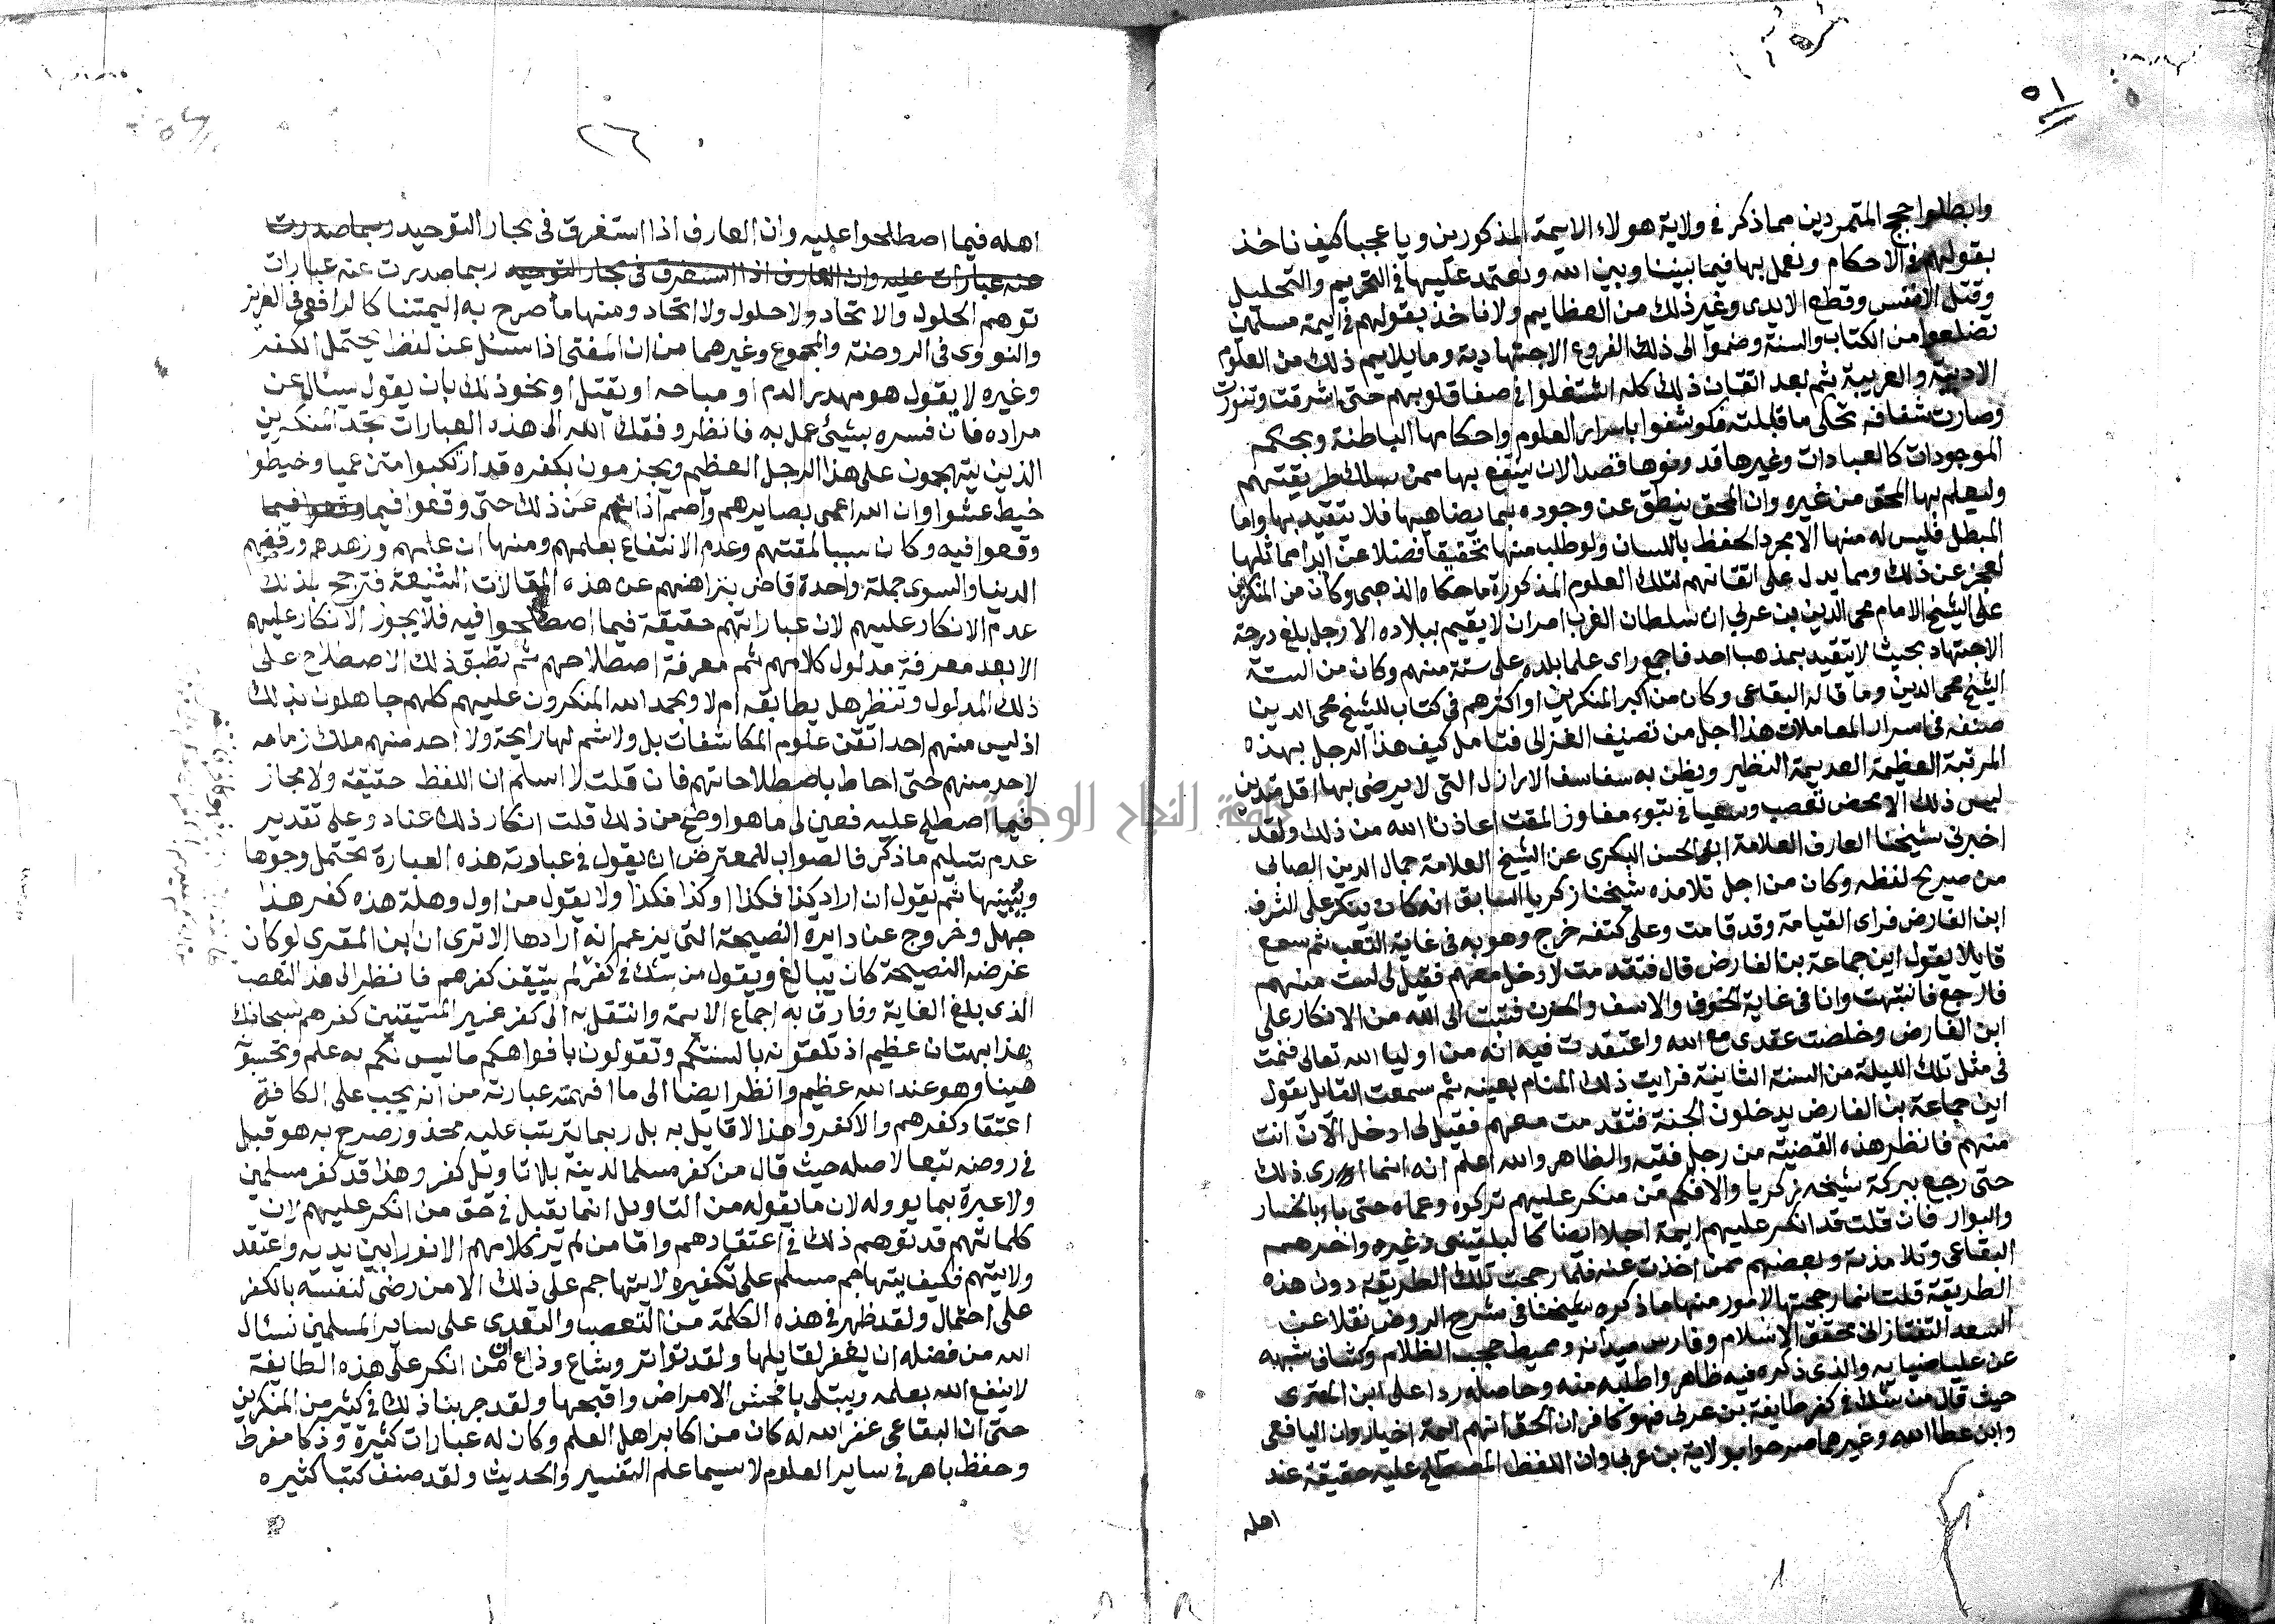 ٥١
وابطلوا حجج المتمردين مما ذكر في ولاية هولاء الايمة المذكورين ويا عجبا كيف ناخذ
بقولهم في الاحكام ونعمل بها فيما بيننا وبين الله ونعتمد عليها في التحريم والتحليل
وقتل الانفس وقطع الايدي وغير ذلك من العظايم ولا ناخذ بقولهم في ايمة مسلمين
تضلعوا من الكتاب والسنة وضموا الى ذلك الفروع الاجتهادية وما يلايم ذلك من العلوم
الادبية والعربية ثم بعد اتقان ذلك كله اشتغلوا في صفا قلوبهم حتى اشرقت وتنورت
وصارت شفافه تحكي ما قابلته فكوشفوا باسرار العلوم واحكامها الباطنة وبحكم
الموجودات كالعبادات وغيرها قد ونوها قصدا لان ينتفع بها ممن سلك طريقتهم
وليعلم بها المحق من غيره وان المحق ينطق عن وجوده بما يضاهيها فلا يتقيد بها واما
المبطل فليس له منها الا مجرد الحفظ باللسان ولو طلب منها تحقيقا فضلا عن ابدا مماثلها
لعجز عن ذلك ومما يدل على اتقانهم لتلك العلوم المذكورة ما حكاه الذهبي وكان من المنكرين
على الشيخ الامام محي الدين بن عربي ان سلطان الغرب امر ان لا يقيم ببلاده الا رجل بلغ درجة
الاجتهاد بحيث لا يتقيد بمذهب احد فاجمع راى علما بلده على ستة منهم وكان من الستة
الشيخ محي الدين وما قاله البقاعي وكان من اكبر المنكرين او اكثرهم في كتاب للشيخ محي الدين
صنفه في اسرار المعاملات هذا اجل من تصنيف الغزالي فتامل كيف هذا الرجل بهذه
المرتبة العظيمة العديمة النظير ويظن به سفاسف الارازل التي لا يرضى بها اقل متدين
ليس ذلك الا محض تعصب وسعيا في تبوء مفاوز المقت اعاذنا الله من ذلك ولقد
اخبرني شيخنا العارف العلامة ابي الحسن البكري عن الشيخ العلامة جمال الدين الصاني
من صريح لفظه وكان من اجل تلامذه شيخنا زكريا السابق انه كان ينكر على الشرف
ابن الفارض فراى القيامة وقد قامت وعلى كتفه خرج وهو به في غاية التعب ثم سمع
قايلا يقول اين جماعة بن الفارض قال فتقدمت لادخل معهم فقيل لي لست منهم
فارجع فانتبهت وانا في غاية الخوف والاسف والحزن فتبت الى الله من الانكار على
ابن الفارض وخلصت عقدي مع الله واعتقدت فيه انه من اوليا الله تعالى فنمت
في مثل تلك الليلة من السنة الثانية فرايت ذلك المنام بعينه ثم سمعت القايل يقول
اين جماعة بن الفارض يدخلون الجنة فتقدمت معهم فقيل لي ادخل الآن انت
منهم فانظر هذه القضية من رجل فقيه والظاهر والله اعلم انه انما راى ذلك
حتى رجع ببركة شيخه زكريا والا فكم من منكر عليهم تركوه وعماه حتى باء بالخسار
والبوار فان قلت قد انكر عليهم ايمة اجلا ايضا كالبلقيني وغيره واخرهم
البقاعي وتلامذته وبعضهم ممن اخذت عنه فلما رجحت تلك الطريقة دون هذه
الطريقة قلت انما رجحتها لامور منها ما ذكره شيخنا في شرح الروض نقلا عن
السعد التفتازاني محقق الاسلام وفارس ميدانه ومميط حجب الظلام وكشاف شبهه
عن عليا ضيايه والذي ذكره فيه ظاهر واطلبه منه وحاصله ردا على ابن المقري
حيث قال من شك في كفر طايفة بن عربي فهو كافر ان الحق انهم ايمة اخيار وان اليافعي
وابن عطا الله وغيرهما صرحوا بولاية بن عربي وان اللفظ المصطلح عليه حقيقة عند
اهله
٢٦
اهله فيما اصطلحوا عليه وان العارف اذا استغرق في بحار التوحيد وربما صدرت
عنه عبارات عليه وان العارف اذا استغرق في بحار التوحيد ربما صدرت عنه عبارات
توهم الحلول والاتحاد ولا حلول ولا اتحاد ومنها ما صرح به ايمتنا كالرافعي في العزيز
والنووي في الروضة والمجموع وغيرهما من ان المفتي اذا سئل عن لفظ يحتمل الكفر
وغيره لا يقول هو مهدر الدم او مباحه او يقتل او نحو ذلك بان يقول يسئال عن
مراده فان فسره بشئ عمل به فانظر وفقك الله الى هذه العبارات تجد المنكرين
الذين يتهجمون على هذا الرجل العظيم ويجزمون بكفره قد ارتكبوا متن عميا وخبطوا
خبط عشوا وان الله اعمى بصايرهم وآصم آذانهم عن ذلك حتى وقعوا فيما وقعوا فيما
وقعوا فيه وكان سببا لمقتهم وعدم الانتفاع بعلمهم ومنها ان علمهم وزهدهم ورفضهم
الدنيا والسوى جملة واحدة قاض بنزاهتهم عن هذه المقالات الشنيعة فترجح بذلك
عدم الانكار عليهم لان عباراتهم حقيقة فيما اصطلحوا فيه فلا يجوز الانكار عليهم
الا بعد معرفة مدلول كلامهم ثم معرفة اصطلاحهم ثم تطبق ذلك الاصطلاح على
ذلك المدلول وتنظر هل يطابقه ام لا وبحمد الله المنكرون عليهم كلهم جاهلون بذلك
اذ ليس منهم احد اتقن علوم المكاشفات بل ولا شم لها رايحة ولا احد منهم ملك زمامه
لاحد منهم حتى احاط باصطلاحاتهم فان قلت لا اسلم ان اللفظ حقيقة ولا مجاز
فيما اصطلح عليه فعين لي ما هو اوضح من ذلك قلت انكار ذلك عناد وعلى تقدير
عدم تسليم ما ذكر فالصواب للمعترض ان يقول في عبادته هذه العبارة تحتمل وجوها
ويبينها ثم يقول ان اراد كذا فكذا او كذا فكذا ولا يقول من اول وهلة هذه كفر هذا
جهل وخروج عن دايرة النصيحة التي يزعم انه ارادها الا ترى ان ابن المقري لو كان
غرضه النصيحة كان يبالغ ويقول من شك في كفر لم يتيقن كفرهم فانظر الى هذا التعصب
الذي بلغ الغاية وفارق به اجماع الايمة وانتقل به الى كفر غير المتيقنين كفرهم سبحانك
هذا بهتان عظيم اذ تلقونه بالسنتكم وتقولون بافواهكم ما ليس لكم به علم وتحسبونه
هينا وهو عند الله عظيم وانظر ايضا الى ما افهمته عبارته من انه يجب على الكافة
اعتقاد كفرهم والا كفروا هذا لا قايل به بل ربما يترتب عليه محذور صرح به هو قبل
في روضه تبعا لاصله حيث قال من كفر مسلما لدينه بلا تاويل كفر وهذا قد كفر مسلمين
ولا عبرة بما يووله لان ما يقوله من التاويل انما يقبل في حق من انكر عليهم لان
كلماتهم قد توهم ذلك في اعتقادهم واما من لم ير كلامهم الا نورا بين يديه واعتقد
ولايتهم فكيف يتهاجم مسلم على تكفيره لا يتهاجم على ذلك الا من رضي لنفسه بالكفر
على احتمال ولقد ظهر في هذه الكلمة من التعصب والتعدي على ساير المسلمين نسئال
الله من فضله ان يغفر لقايلها ولقد تواتر وشاع وذاع ان من انكر على هذه الطايفة
لا ينفع الله بعلمه ويبتلى بافحش الامراض واقبحها ولقد جربنا ذلك في كثير من المنكرين
حتى ان البقاعي غفر الله له كان من اكابر اهل العلم وكان له عبارات كثيرة وذكا مفرط
وحفظ باهر في ساير العلوم لا سيما علم التفسير والحديث ولقد صنف كتبا كثيره